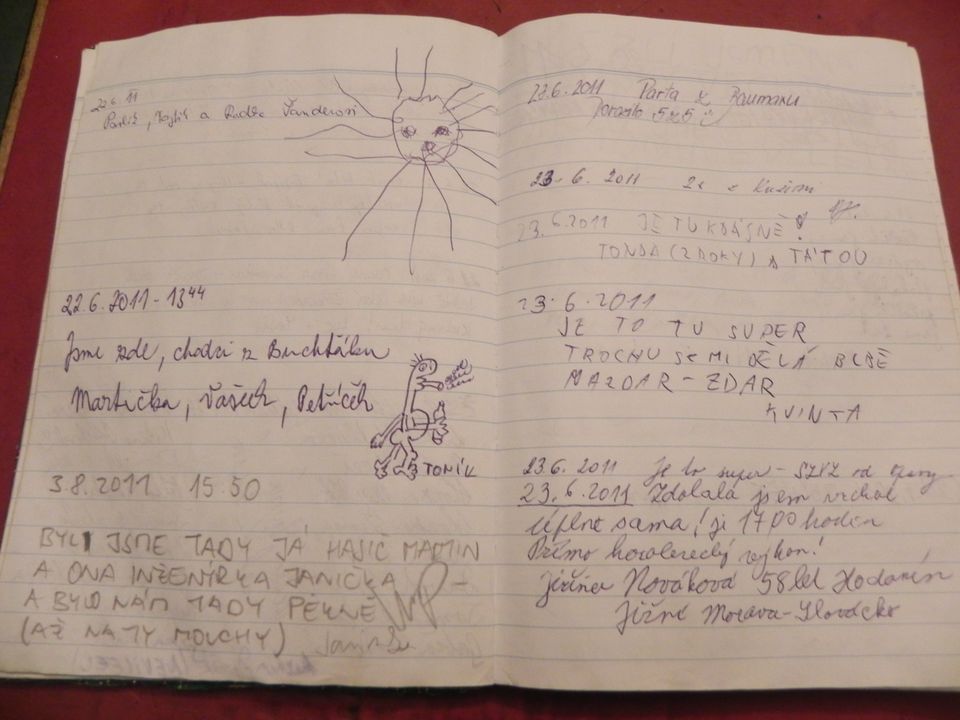 22.6.11
a Radka Šanderovi
22.6.2011 - 13⁴⁴
Jsme zde, chodci z Buchtáku
Martička, Vašeček, Petříček
TONÍK
3.8.2011 15.50
BYLI JSME TADY JÁ HASIČ MARTIN
A ONA INŽENÝRKA JANIČKA
A BYLO NÁM TADY PĚKNĚ
(AŽ NA TY MOUCHY)
22.6.2011 Parta z Baumaxu
23.6.2011 2x z
23.6.2011 JE TU KRÁSNĚ!
TONDA (2 ROKY) A TÁTOU
23.6.2011
JE TO TU SUPER
TROCHU SE MI DĚLÁ BLBĚ
NAZDAR - ZDAR
KVINTA
23.6.2011 je to super - od
23.6.2011 Zdolala jsem vrchol
úplně sama! je 17,00 hodin
Přímo horolezecký
Jiřina Nováková 58 let Hodonín
Jižní Morava - Slovácko